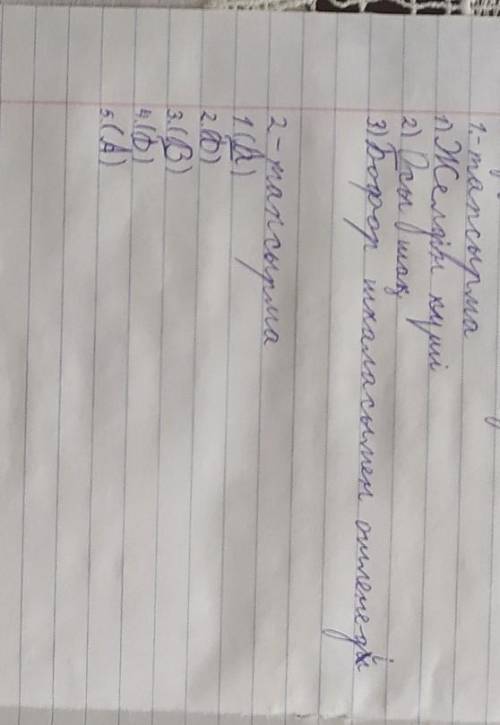 1.-тапсырма
1) Желдің күші
2) Осы шақ
3) Бофор шкаласымен өлшенеді
2-тапсырма
1.(A)
2.(D)
3.(B)
4.(D)
5.(A)